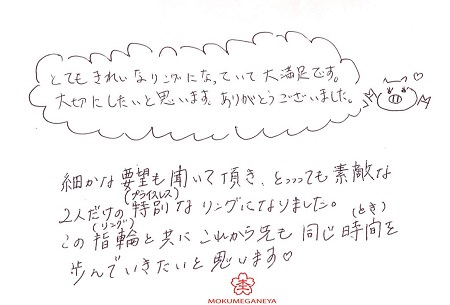 とてもきれいなリングになっていて大満足です。
大切にしたいと思います。ありがとうございました。
細かな要望も聞いて頂き、とっっっても素敵な
2人だけの特別(プライスレス)なリングになりました。
この指輪(リング)と共にこれから先も同じ時間(とき)を
歩んでいきたいと思います♡
MOKUMEGANEYA